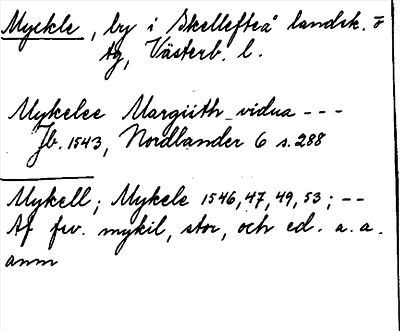 Myckle, by i Skellefteå landsk. o
tg, Västerb. l.
Mykelee Margüth vidua - - -
Jb. 1543, Nordlander 6 s. 288
Mykell; Mykele 1546, 47, 49, 53; - -
Af fsv. mykil, stor, och ed. a. a.
anm